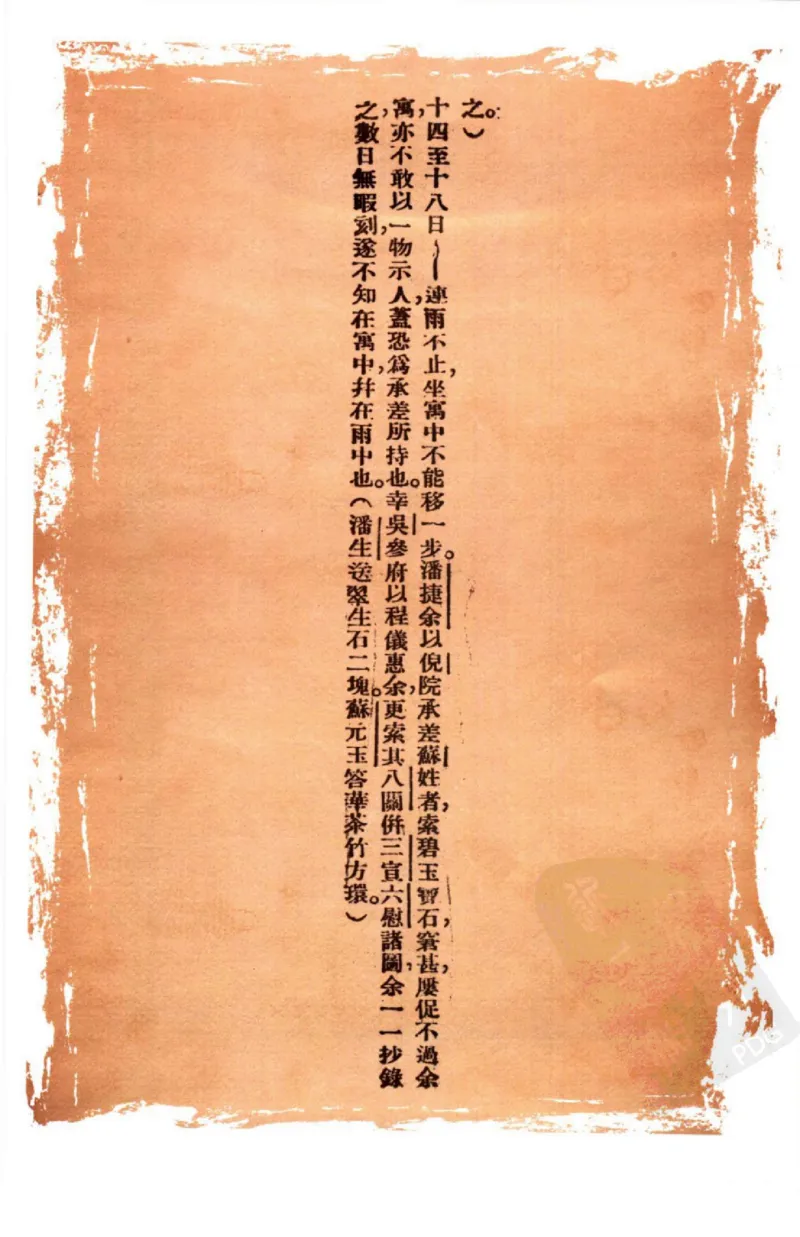 之。）
十四至十八日——連雨不止，坐寓中不能移一步。潘捷余以倪院承差蘇姓者，索碧玉寶石，窘甚，屢促不過余
寓，亦不敢以一物示人，蓋恐爲承差所持也。幸吳參府以程儀惠余，更索其八關併三宣六慰諸圖，余一一抄錄
之，數日無暇刻，遂不知在寓中，幷在雨中也。（潘生送翠生石二塊。蘇元玉答華茶竹方環。）
PDG